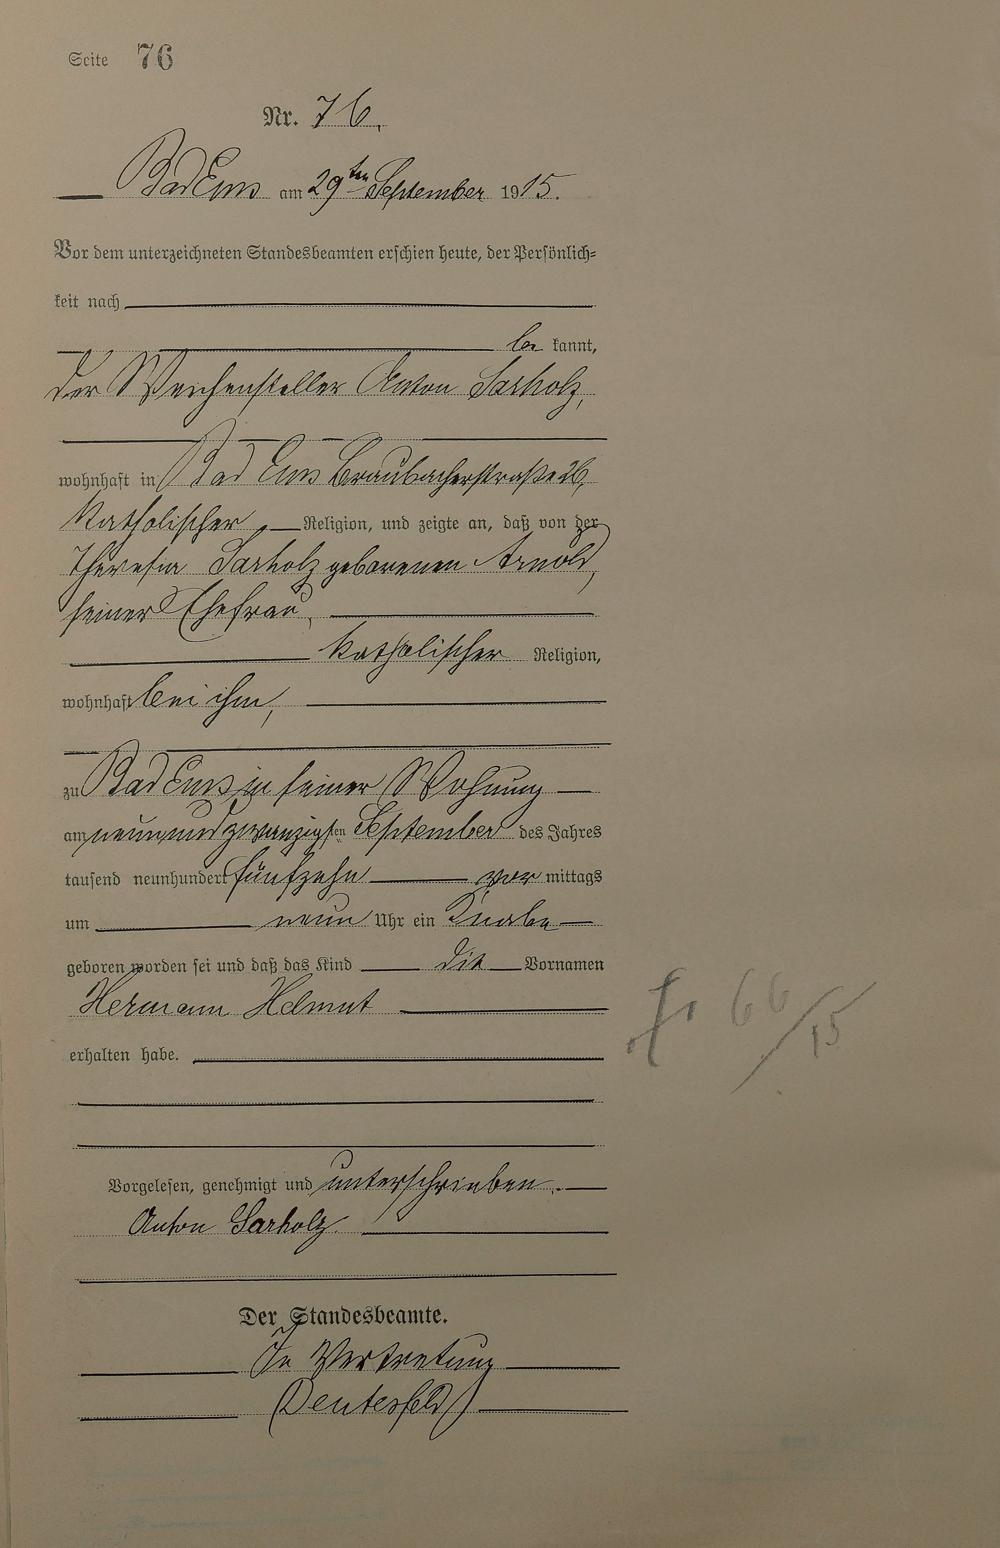 Seite 76
Nr. 76.
Bad Ems am 29ten September 1915.
Vor dem unterzeichneten Standesbeamten erschien heute, der Persönlich=
keit nach
be kannt,
der Weichensteller Anton Sarholz,
wohnhaft in Bad Ems Braubacherstraße 26,
katholischer Religion, und zeigte an, daß von der
Theresia Sarholz geborenen Arnold,
seiner Ehefrau,
katholischer Religion,
wohnhaft bei ihm,
zu Bad Ems in seiner Wohnung
am neunundzwanzigsten September des Jahres
tausend neunhundert fünfzehn vor mittags
um neun Uhr ein Knabe
geboren worden sei und daß das Kind die Vornamen
Hermann Helmut
erhalten habe.
Vorgelesen, genehmigt und unterschrieben.
Anton Sarholz
Der Standesbeamte.
In Vertretung
(Deutesfeld)
66/15